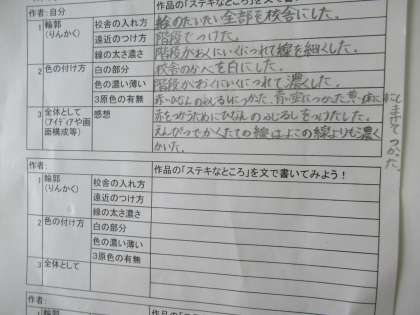 作者：自分
作品の「ステキなところ」を文で書いてみよう！
1 輪郭（りんかく） 校舎の入れ方 絵のだいたい全部を校舎にした。
遠近のつけ方 階段でつけた。
線の太さ濃さ 階段がおくにいくにつれて線を細くした。
2 色の付け方 白の部分 校舎のかべを白にした。
色の濃い薄い 階段がおくにいくにつれて濃くした。
3原色の有無
3 全体として（アイディアや画面構成等） 感想
えんぴつでかくたての線はよこの線よりも濃く
かいた。
作者：
作品の「ステキなところ」を文で書いてみよう！
1 輪郭（りんかく） 校舎の入れ方
遠近のつけ方
線の太さ濃さ
2 色の付け方 白の部分
色の濃い薄い
3原色の有無
3 全体として
作者：
1 輪郭